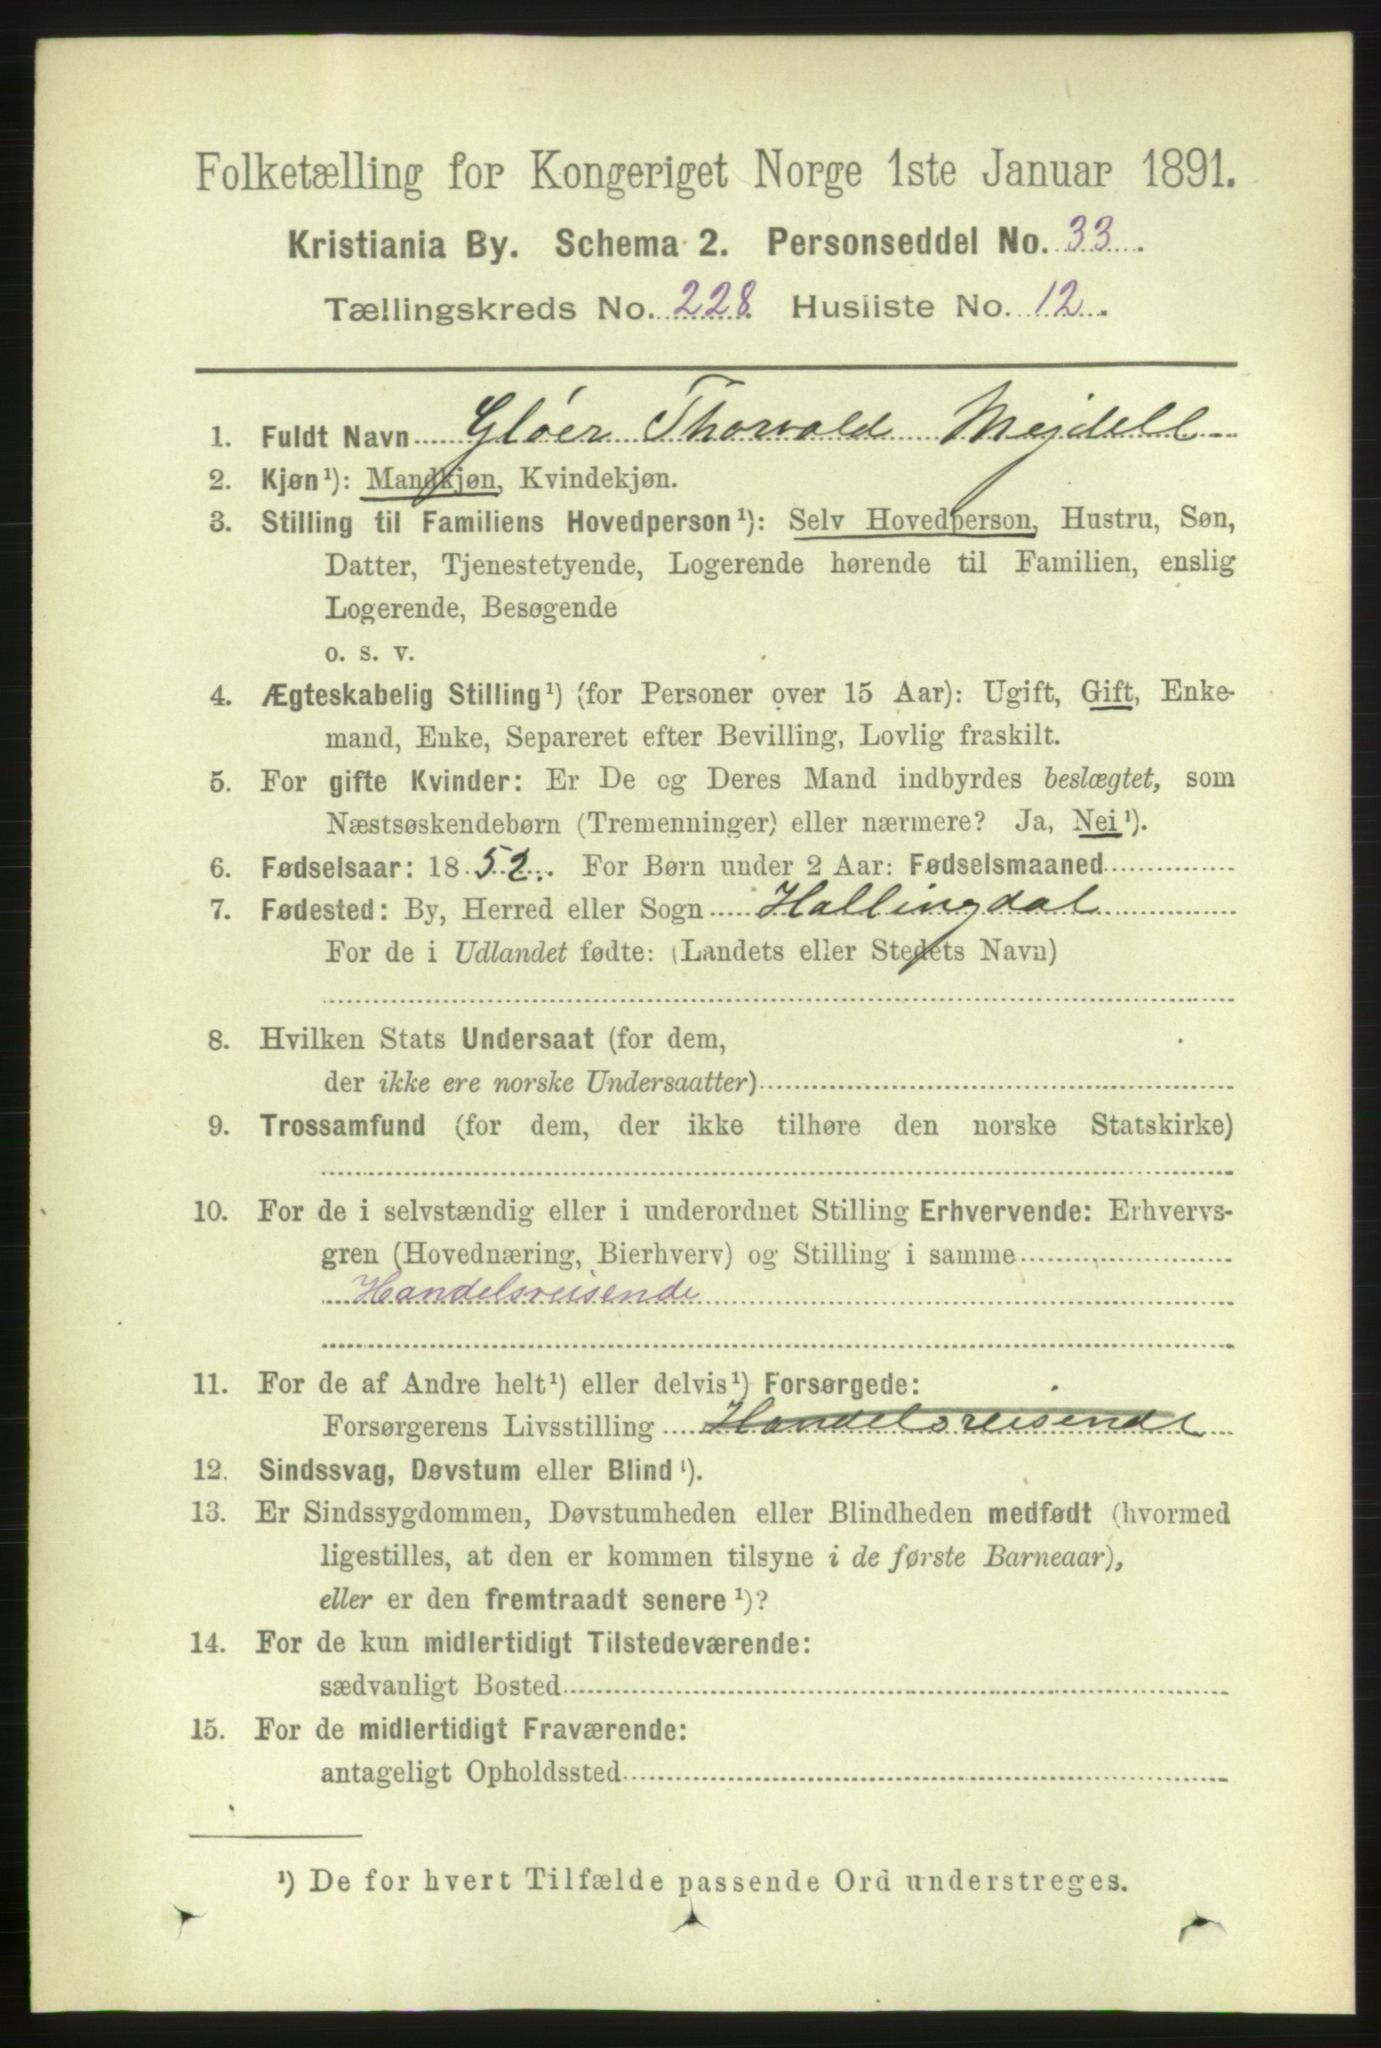 Folketælling for Kongeriget Norge 1ste Januar 1891.
Kristiania By. Schema 2. Personseddel No. 33.
Tællingskreds No. 228. Husliste No. 12.
1. Fuldt Navn Glöer Thorvald Mejdell
2. Kjøn¹): Mandkjøn, Kvindekjøn.
3. Stilling til Familiens Hovedperson¹): Selv Hovedperson, Hustru, Søn,
Datter, Tjenestetyende, Logerende hørende til Familien, enslig
Logerende, Besøgende
o. s. v.
4. Ægteskabelig Stilling¹) (for Personer over 15 Aar): Ugift, Gift, Enke-
mand, Enke, Separeret efter Bevilling, Lovlig fraskilt.
5. For gifte Kvinder: Er De og Deres Mand indbyrdes beslægtet, som
Næstsøskendebørn (Tremenninger) eller nærmere? Ja, Nei¹).
6. Fødselsaar: 1852. For Børn under 2 Aar: Fødselsmaaned
7. Fødested: By, Herred eller Sogn Hallingdal
For de i Udlandet fødte: (Landets eller Stedets Navn)
8. Hvilken Stats Undersaat (for dem,
der ikke ere norske Undersaatter)
9. Trossamfund (for dem, der ikke tilhøre den norske Statskirke)
10. For de i selvstændig eller i underordnet Stilling Erhvervende: Erhvervs-
gren (Hovednæring, Bierhverv) og Stilling i samme
Handelsreisende
11. For de af Andre helt¹) eller delvis¹) Forsørgede:
Forsørgerens Livsstilling Handelsreisende
12. Sindssvag, Døvstum eller Blind¹).
13. Er Sindssygdommen, Døvstumheden eller Blindheden medfødt (hvormed
ligestilles, at den er kommen tilsyne i de første Barneaar),
eller er den fremtraadt senere¹)?
14. For de kun midlertidigt Tilstedeværende:
sædvanligt Bosted
15. For de midlertidigt Fraværende:
antageligt Opholdssted
¹) De for hvert Tilfælde passende Ord understreges.